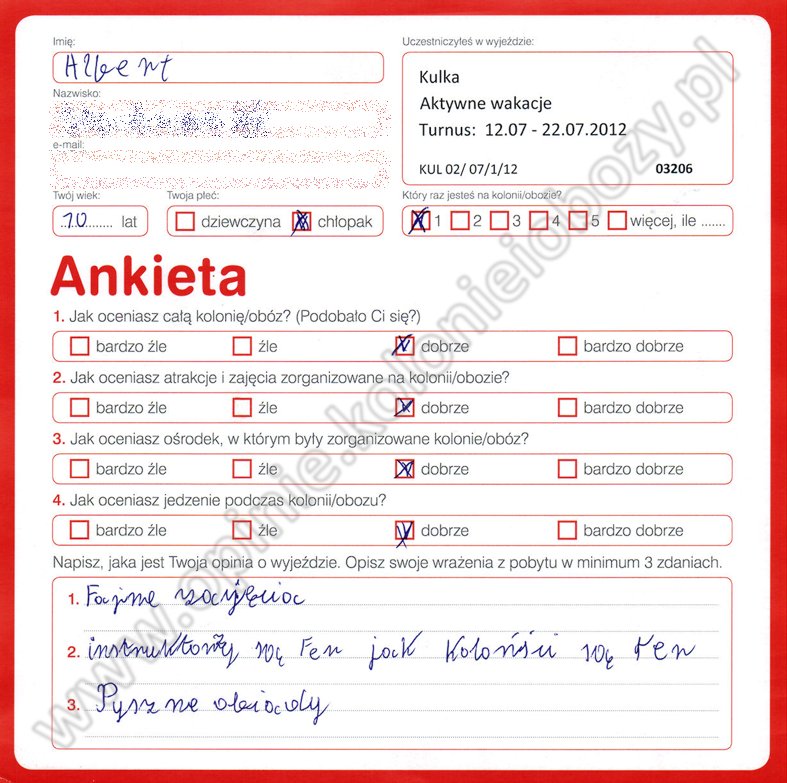 Imię:
Albert
Uczestniczyłeś w wyjeździe:
Kulka
Aktywne wakacje
Turnus: 12.07 - 22.07.2012
KUL 02/ 07/1/12 03206
Nazwisko:
e-mail:
Twój wiek:
10 lat
Twoja płeć:
dziewczyna chłopak
Który raz jesteś na kolonii/obozie?
1 2 3 4 5 więcej, ile .......
Ankieta
1. Jak oceniasz całą kolonię/obóz? (Podobało Ci się?)
bardzo źle źle dobrze bardzo dobrze
2. Jak oceniasz atrakcje i zajęcia zorganizowane na kolonii/obozie?
bardzo źle źle dobrze bardzo dobrze
3. Jak oceniasz ośrodek, w którym były zorganizowane kolonie/obóz?
bardzo źle źle dobrze bardzo dobrze
4. Jak oceniasz jedzenie podczas kolonii/obozu?
bardzo źle źle dobrze bardzo dobrze
Napisz, jaka jest Twoja opinia o wyjeździe. Opisz swoje wrażenia z pobytu w minimum 3 zdaniach.
1. Fajne zajęcia
2. instruktorzy są Fer jak kolońści są Fer
3. Pyszne obiady
www.opinie.kolonieiobozy.pl